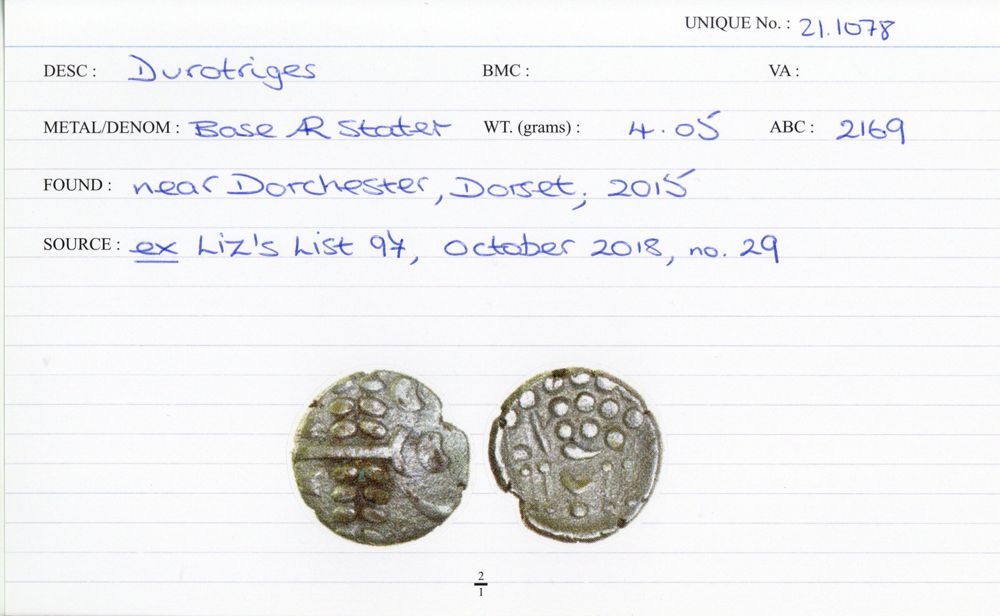 UNIQUE No. : 21.1078
DESC : Durotriges BMC : VA :
METAL/DENOM : Base AR Stater WT. (grams) : 4.05 ABC : 2169
FOUND : near Dorchester, Dorset, 2015
SOURCE : ex Liz's List 97, October 2018, no. 29
2
1